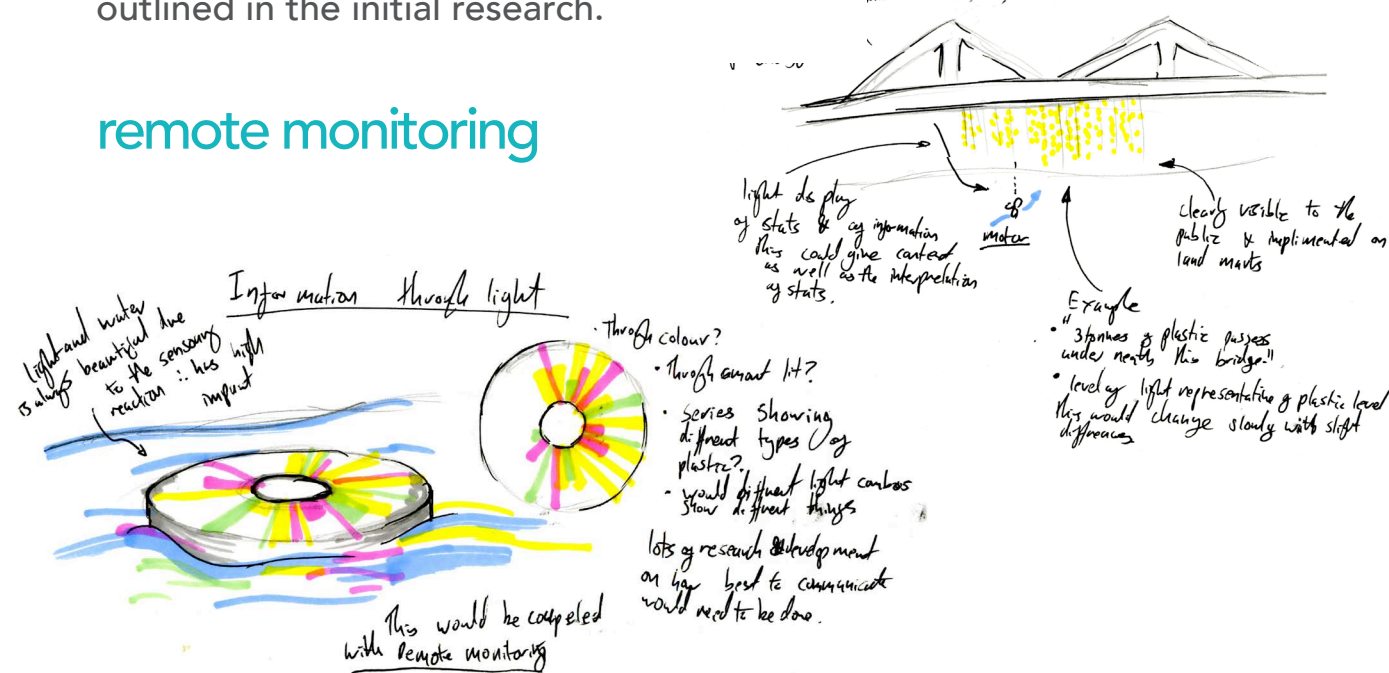 outlined in the initial research.
remote monitoring
light display
of stats & of information
this could give context
as well as the interpretation
of stats.
motor
clearly visible to the
public & implimented on
land marks
Example
"3 tonnes of plastic passes
under neath this bridge."
• level of light representative of plastic level
this would change slowly with slight
differences
Information through light
light and water
is always beautiful due
to the sensoury
reaction ∴ has high
impact
• Through colour?
• Through amount lit?
• series showing
different types of
plastic?
• would different light combos
show different things
lots of research & development
on how best to communicate
would need to be done.
This would be coupeled
with Remote monitoring